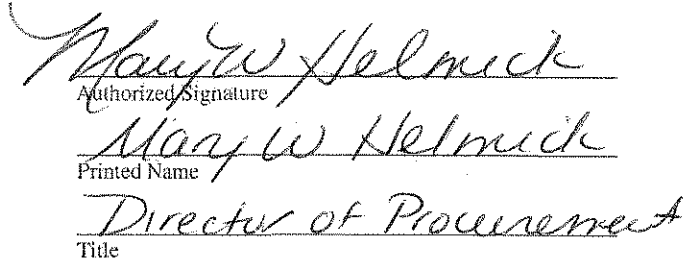 Mary W Helmick
Authorized Signature
Mary W Helmick
Printed Name
Director of Procurement
Title